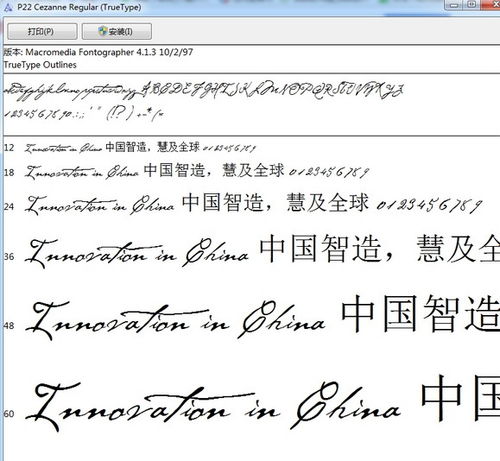 P22 Cezanne Regular (TrueType)
打印(P) 安装(I)
版本: Macromedia Fontographer 4.1.3 10/2/97
TrueType Outlines
abcdefghijklmnopqrstuvwxyz ABCDEFGHIJKLMNOPQRSTUVWXYZ
1234567890.:,; ' " (!?) +-*/=
12 Innovation in China 中国智造，慧及全球 0123456789
18 Innovation in China 中国智造，慧及全球 0123456789
24 Innovation in China 中国智造，慧及全球 0123456789
36 Innovation in China 中国智造，慧及全
48 Innovation in China 中国智造
60 Innovation in China 中国